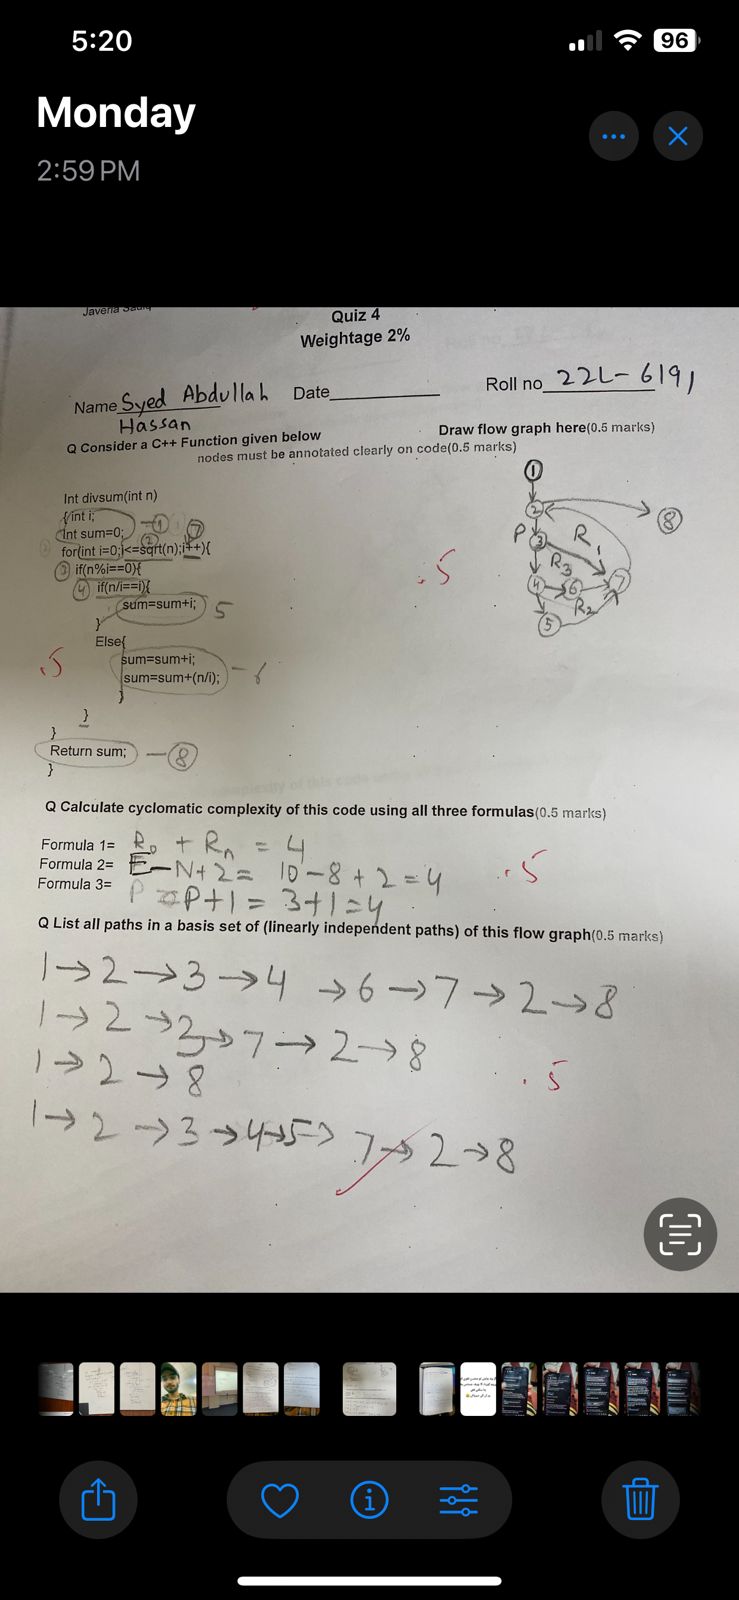 5:20
96
Monday
2:59 PM
Quiz 4
Weightage 2%
Name Syed Abdullah Hassan Date Roll no 22L-6191
Q Consider a C++ Function given below Draw flow graph here(0.5 marks)
nodes must be annotated clearly on code(0.5 marks)
Int divsum(int n)
{int i; 1
Int sum=0; 2 7
for(int i=0;i<=sqrt(n);i++){
3 if(n%i==0){
4 if(n/i==i){
sum=sum+i; 5
}
Else{
sum=sum+i;
sum=sum+(n/i); - 6
}
}
}
Return sum; - 8
}
1
2
8
P 3 R1
R3
4 6 7
R2
5
.5
.5
Q Calculate cyclomatic complexity of this code using all three formulas(0.5 marks)
Formula 1= + Rn = 4
Formula 2= E-N+2= 10-8+2=4
Formula 3= P+1= 3+1=4
.5
Q List all paths in a basis set of (linearly independent paths) of this flow graph(0.5 marks)
1→2→3→4 →6→7→2→8
1→2→3→7→2→8
1→2→8
.5
1→2→3→4→5→ 7→2→8